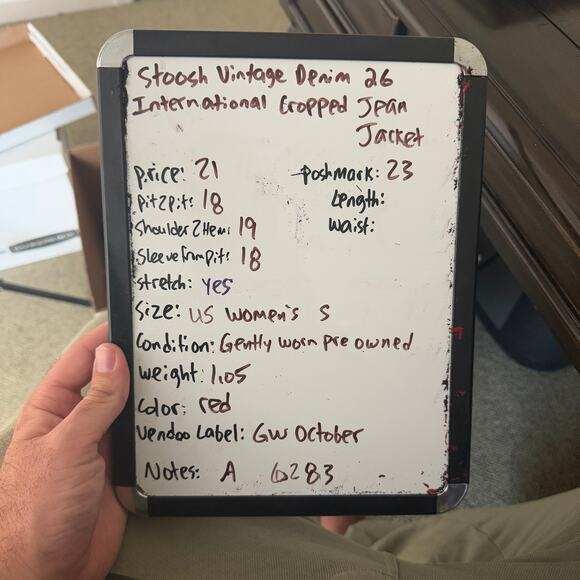 Stoosh Vintage Denim 26
International Cropped Jean
Jacket
price: 21
poshmark: 23
pit2pit: 18
Length:
Shoulder2Hem: 19
Waist:
Sleeve from pit: 18
stretch: yes
Size: US Women's S
Condition: Gently worn pre owned
weight: 1.05
Color: red
Vendoo Label: GW October
Notes: A 6283